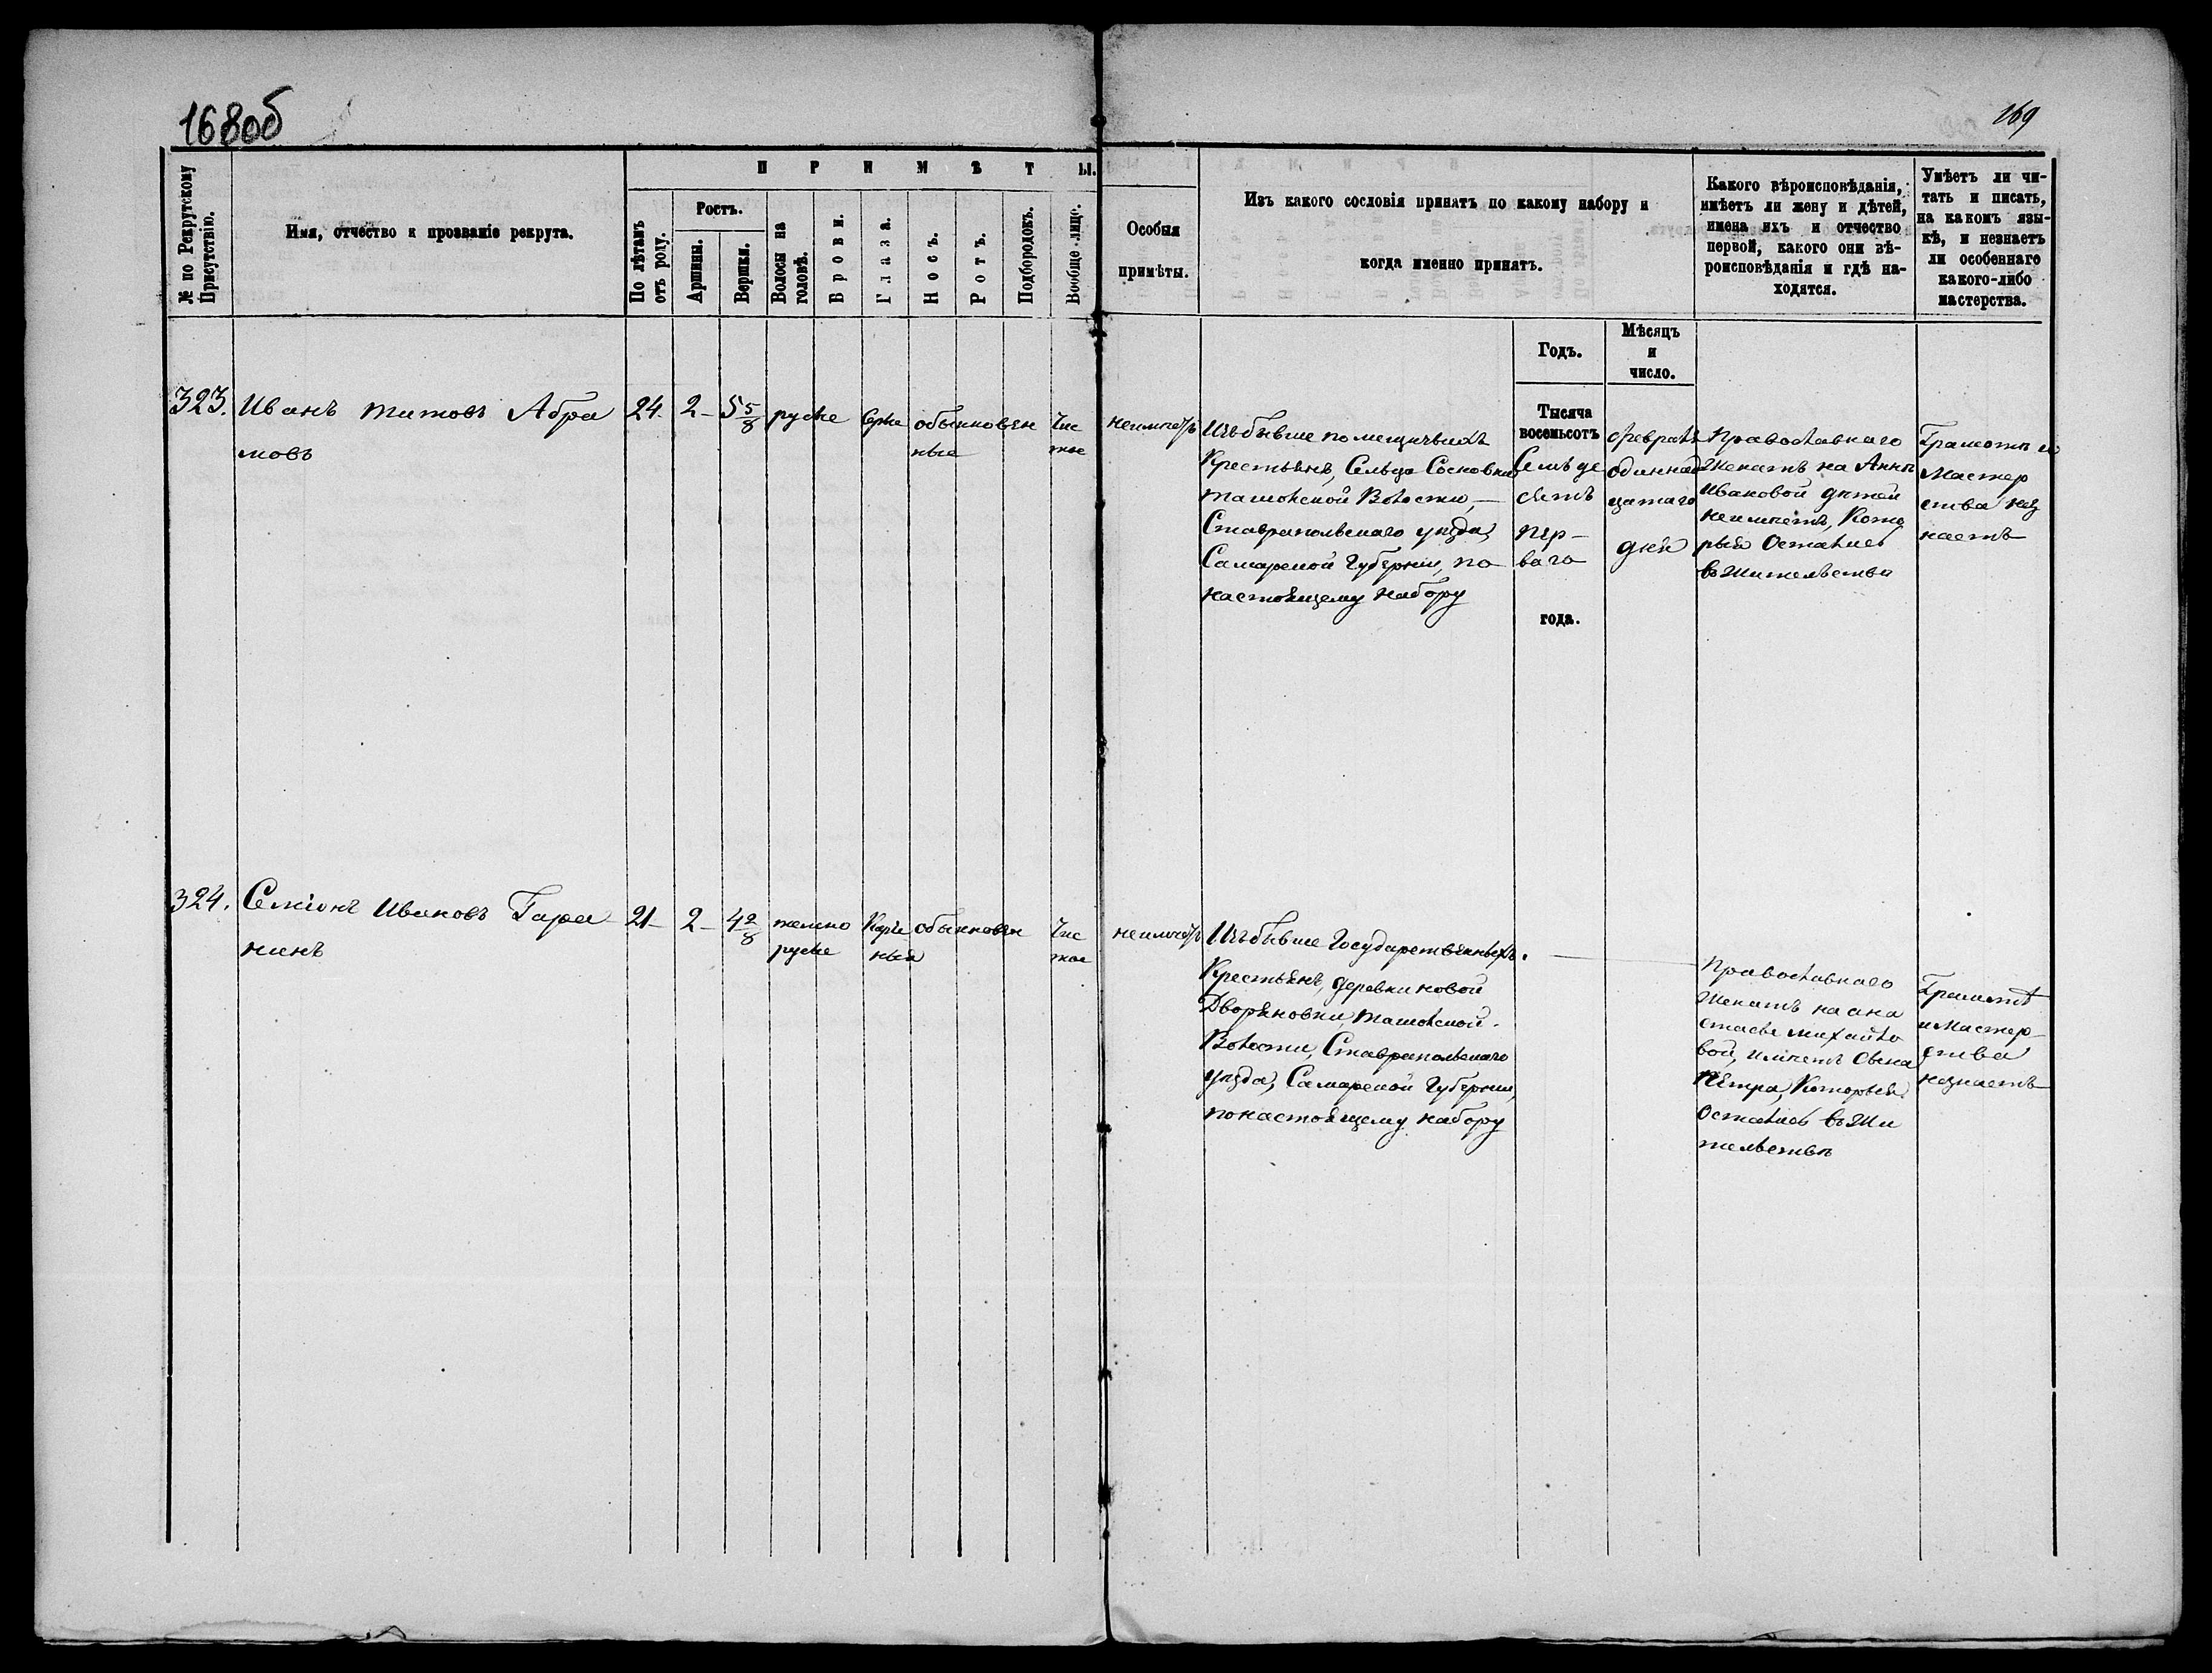 168об
169
№ по Рекрутскому Присутствію.
Имя, отчество и прозваніе рекрута.
ПРИМѢТЫ.
По лѣтамъ отъ роду.
Ростъ.
Аршины.
Вершки.
Волосы на головѣ.
Брови.
Глаза.
Носъ.
Ротъ.
Подбородокъ.
Вообще лице.
Особыя
примѣты.
Изъ какого сословія принятъ по какому набору и
когда именно принятъ.
Какого вѣроисповѣданія,
имѣетъ ли жену и дѣтей,
имена ихъ и отчество
первой, какого они вѣ-
роисповѣданія и гдѣ на-
ходятся.
Умѣетъ ли чи-
тать и писать,
на какомъ язы-
кѣ, и незнаетъ
ли особеннаго
какого-либо
мастерства.
Годъ.
Мѣсяцъ
и
число.
323.
Иванъ Титовъ Абра
мовъ
24
2
5 5/8
русые
обыкновен
ные
Чис
тое
неимѣетъ
Изъ бывше помещичьихъ
Крестьянъ, Сельца Сосновки
Ташолской Волости,
Ставропольскаго уѣзда,
Самарской Губерніи, по
настоящему набору
Тысяча
восемьсотъ
Семьде
сятъ
пер-
ваго
года.
Февраля
одиннад
цатаго
дня
Православнаго
Женатъ на Аннѣ
Ивановой дѣтей
неимѣетъ, Кото
рыя Остались
въ Жительствѣ
Грамотѣ и
Мастер
ства нез
наетъ
324.
Семіонъ Ивановъ Гара
нинъ
21
2
4 2/8
темно
русые
обыкновен
Чис
тое
неимѣетъ
Изъ бывше Государственныхъ
Крестьянъ, деревни новой
Дворяновки, Ташолской
Волости, Ставропольскаго
уѣзда, Самарской Губерніи,
по настоящему набору
Православнаго
Женатъ на Ана
стасье Михайло
вой, имѣетъ Сына
Петра, Которыя
Остались въ Жи
тельствѣ
Грамотѣ
и Мастер
ства
незнаетъ